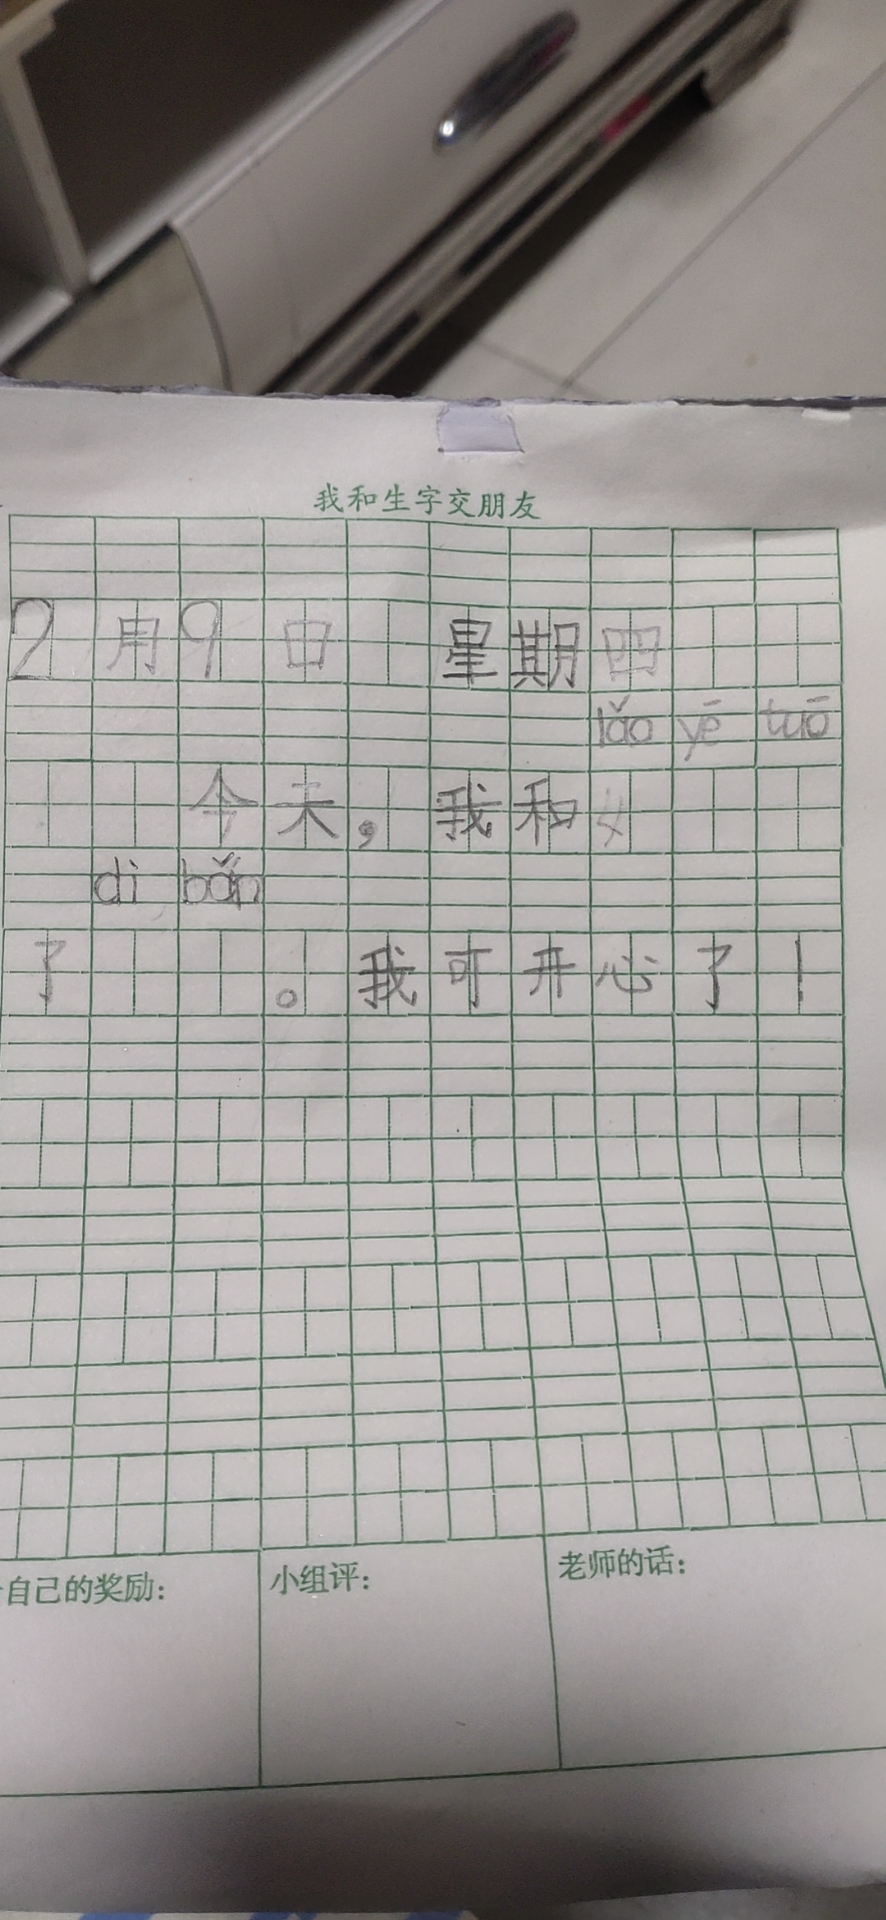 我和生字交朋友
2月9日 星期四
lǎo yē tuō
今天，我和
dì bǎn
了 。我可开心了！
自己的奖励： 小组评： 老师的话：